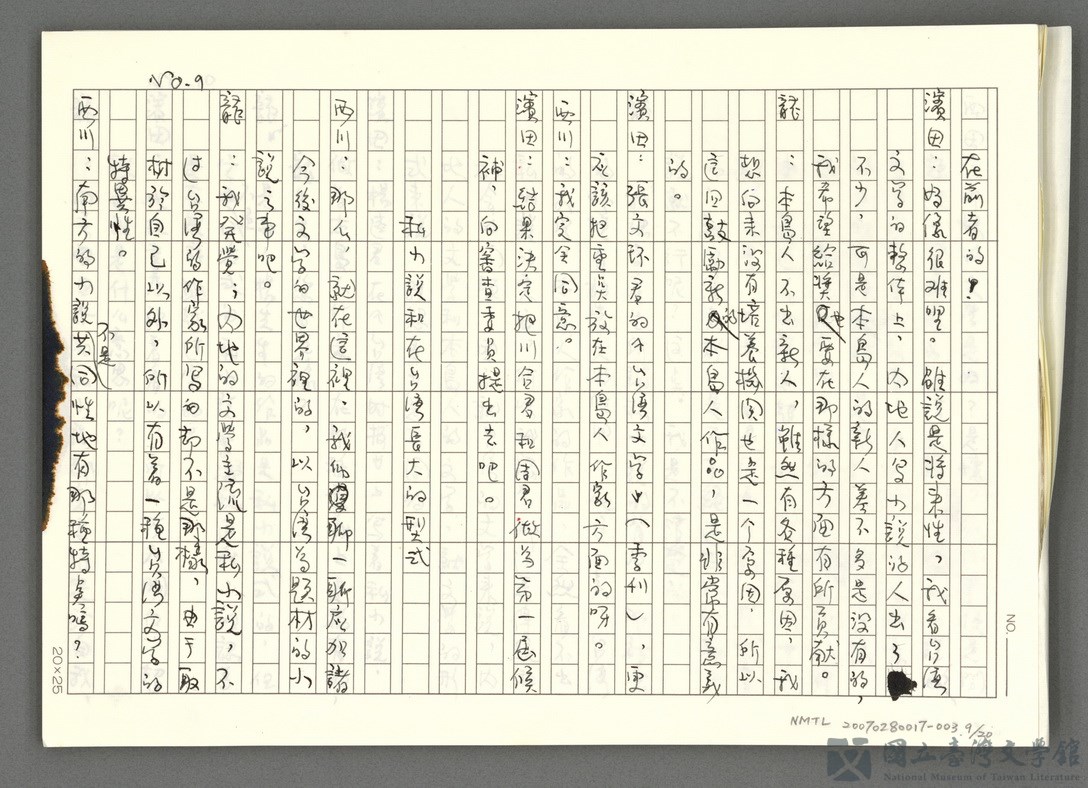 No.9
在前者的!
濱田：好像很难哩。雖說是将来性，我看台湾
文学的整体上，内地人写小說的人出了
不少，可是本島人的新人差不多是没有的，
我希望給獎也要在那樣的方面有所貢献。
龍：本島人不出新人，雖然有各種原因，我
想向来没有培養機関也是一个原因，所以
這回鼓勵新的本島人作品，是非常有意義
的。
濱田：張文环君的「台湾文学」（季刊），更
应該把重点放在本島人作家方面的呀。
西川：我完全同意。
濱田：結果决定把川合君和周君做為第一届候
補，向審查委員提出去吧。
私小說和在台湾長大的型式
西川：那么，就在這裡，我们漫聊一聊応如諸
今後文学的世界裡的，以台湾為題材的小
說之事吧。
龍：我発覚；内地的文学主流是私小說，不
过台湾的作家所写的却不是那樣，由于取
材於自己以外，所以有着一種台湾文学的
特異性。
西川：南方的小說不是共同性地有那種特点嗎？
20×25
NO.
NMTL 20070280017-003.9/20
國立臺灣文學館
National Museum of Taiwan Literature